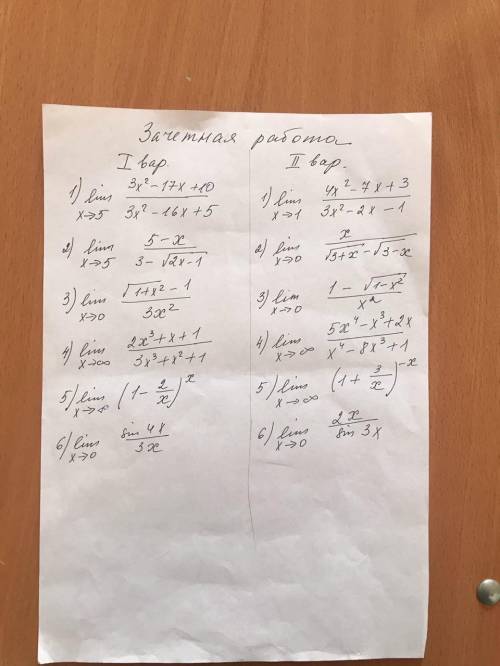 Зачетная работа
I вар.
1) lim x→5 (3x² - 17x + 10)/(3x² - 16x + 5)
2) lim x→5 (5 - x)/(3 - √(2x - 1))
3) lim x→0 (√(1 + x²) - 1)/(3x²)
4) lim x→∞ (2x³ + x + 1)/(3x³ + x² + 1)
5) lim x→∞ (1 - 2/x)^x
6) lim x→0 (sin 4x)/(3x)
II вар.
1) lim x→1 (4x² - 7x + 3)/(3x² - 2x - 1)
2) lim x→0 x/(√(3 + x) - √(3 - x))
3) lim x→0 (1 - √(1 - x²))/x²
4) lim x→∞ (5x⁴ - x³ + 2x)/(x⁴ - 8x³ + 1)
5) lim x→∞ (1 + 3/x)^(-x)
6) lim x→0 (2x)/(sin 3x)